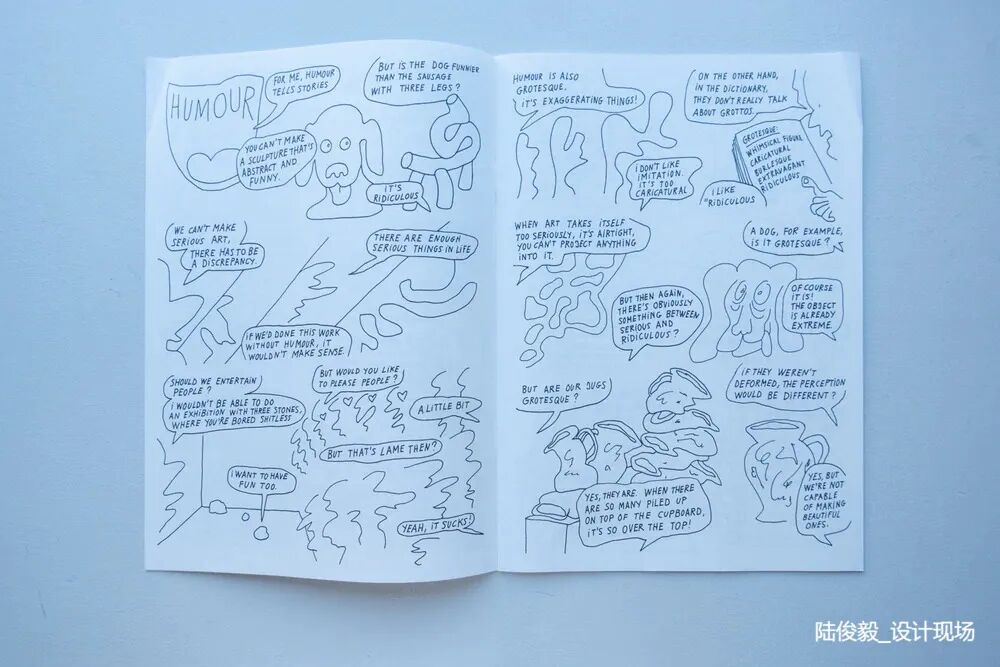 HUMOUR
FOR ME, HUMOUR
TELLS STORIES
BUT IS THE DOG FUNNIER
THAN THE SAUSAGE
WITH THREE LEGS?
YOU CAN'T MAKE
A SCULPTURE THAT'S
ABSTRACT AND
FUNNY.
IT'S
RIDICULOUS
WE CAN'T MAKE
SERIOUS ART,
THERE HAS TO BE
A DISCREPANCY.
THERE ARE ENOUGH
SERIOUS THINGS IN LIFE
IF WE'D DONE THIS WORK
WITHOUT HUMOUR, IT
WOULDN'T MAKE SENSE.
SHOULD WE ENTERTAIN
PEOPLE?
I WOULDN'T BE ABLE TO DO
AN EXHIBITION WITH THREE STONES,
WHERE YOU'RE BORED SHITLESS
BUT WOULD YOU LIKE
TO PLEASE PEOPLE?
A LITTLE BIT
BUT THAT'S LAME THEN?
I WANT TO HAVE
FUN TOO.
YEAH, IT SUCKS!
HUMOUR IS ALSO
GROTESQUE.
IT'S EXAGGERATING THINGS!
ON THE OTHER HAND,
IN THE DICTIONARY,
THEY DON'T REALLY TALK
ABOUT GROTTOS.
GROTESQUE:
WHIMSICAL FIGURE
CARICATURAL
BURLESQUE
EXTRAVAGANT
RIDICULOUS
I DON'T LIKE
IMITATION.
IT'S TOO
CARICATURAL
I LIKE
"RIDICULOUS
WHEN ART TAKES ITSELF
TOO SERIOUSLY, IT'S AIRTIGHT,
YOU CAN'T PROJECT ANYTHING
INTO IT.
A DOG, FOR EXAMPLE,
IS IT GROTESQUE?
BUT THEN AGAIN,
THERE'S OBVIOUSLY
SOMETHING BETWEEN
SERIOUS AND
RIDICULOUS?
OF COURSE
IT IS!
THE OBJECT
IS ALREADY
EXTREME.
BUT ARE OUR JUGS
GROTESQUE?
IF THEY WEREN'T
DEFORMED, THE PERCEPTION
WOULD BE DIFFERENT?
YES, THEY ARE. WHEN THERE
ARE SO MANY PILED UP
ON TOP OF THE CUPBOARD,
IT'S SO OVER THE TOP!
YES, BUT
WE'RE NOT
CAPABLE
OF MAKING
BEAUTIFUL
ONES.
陆俊毅_设计现场